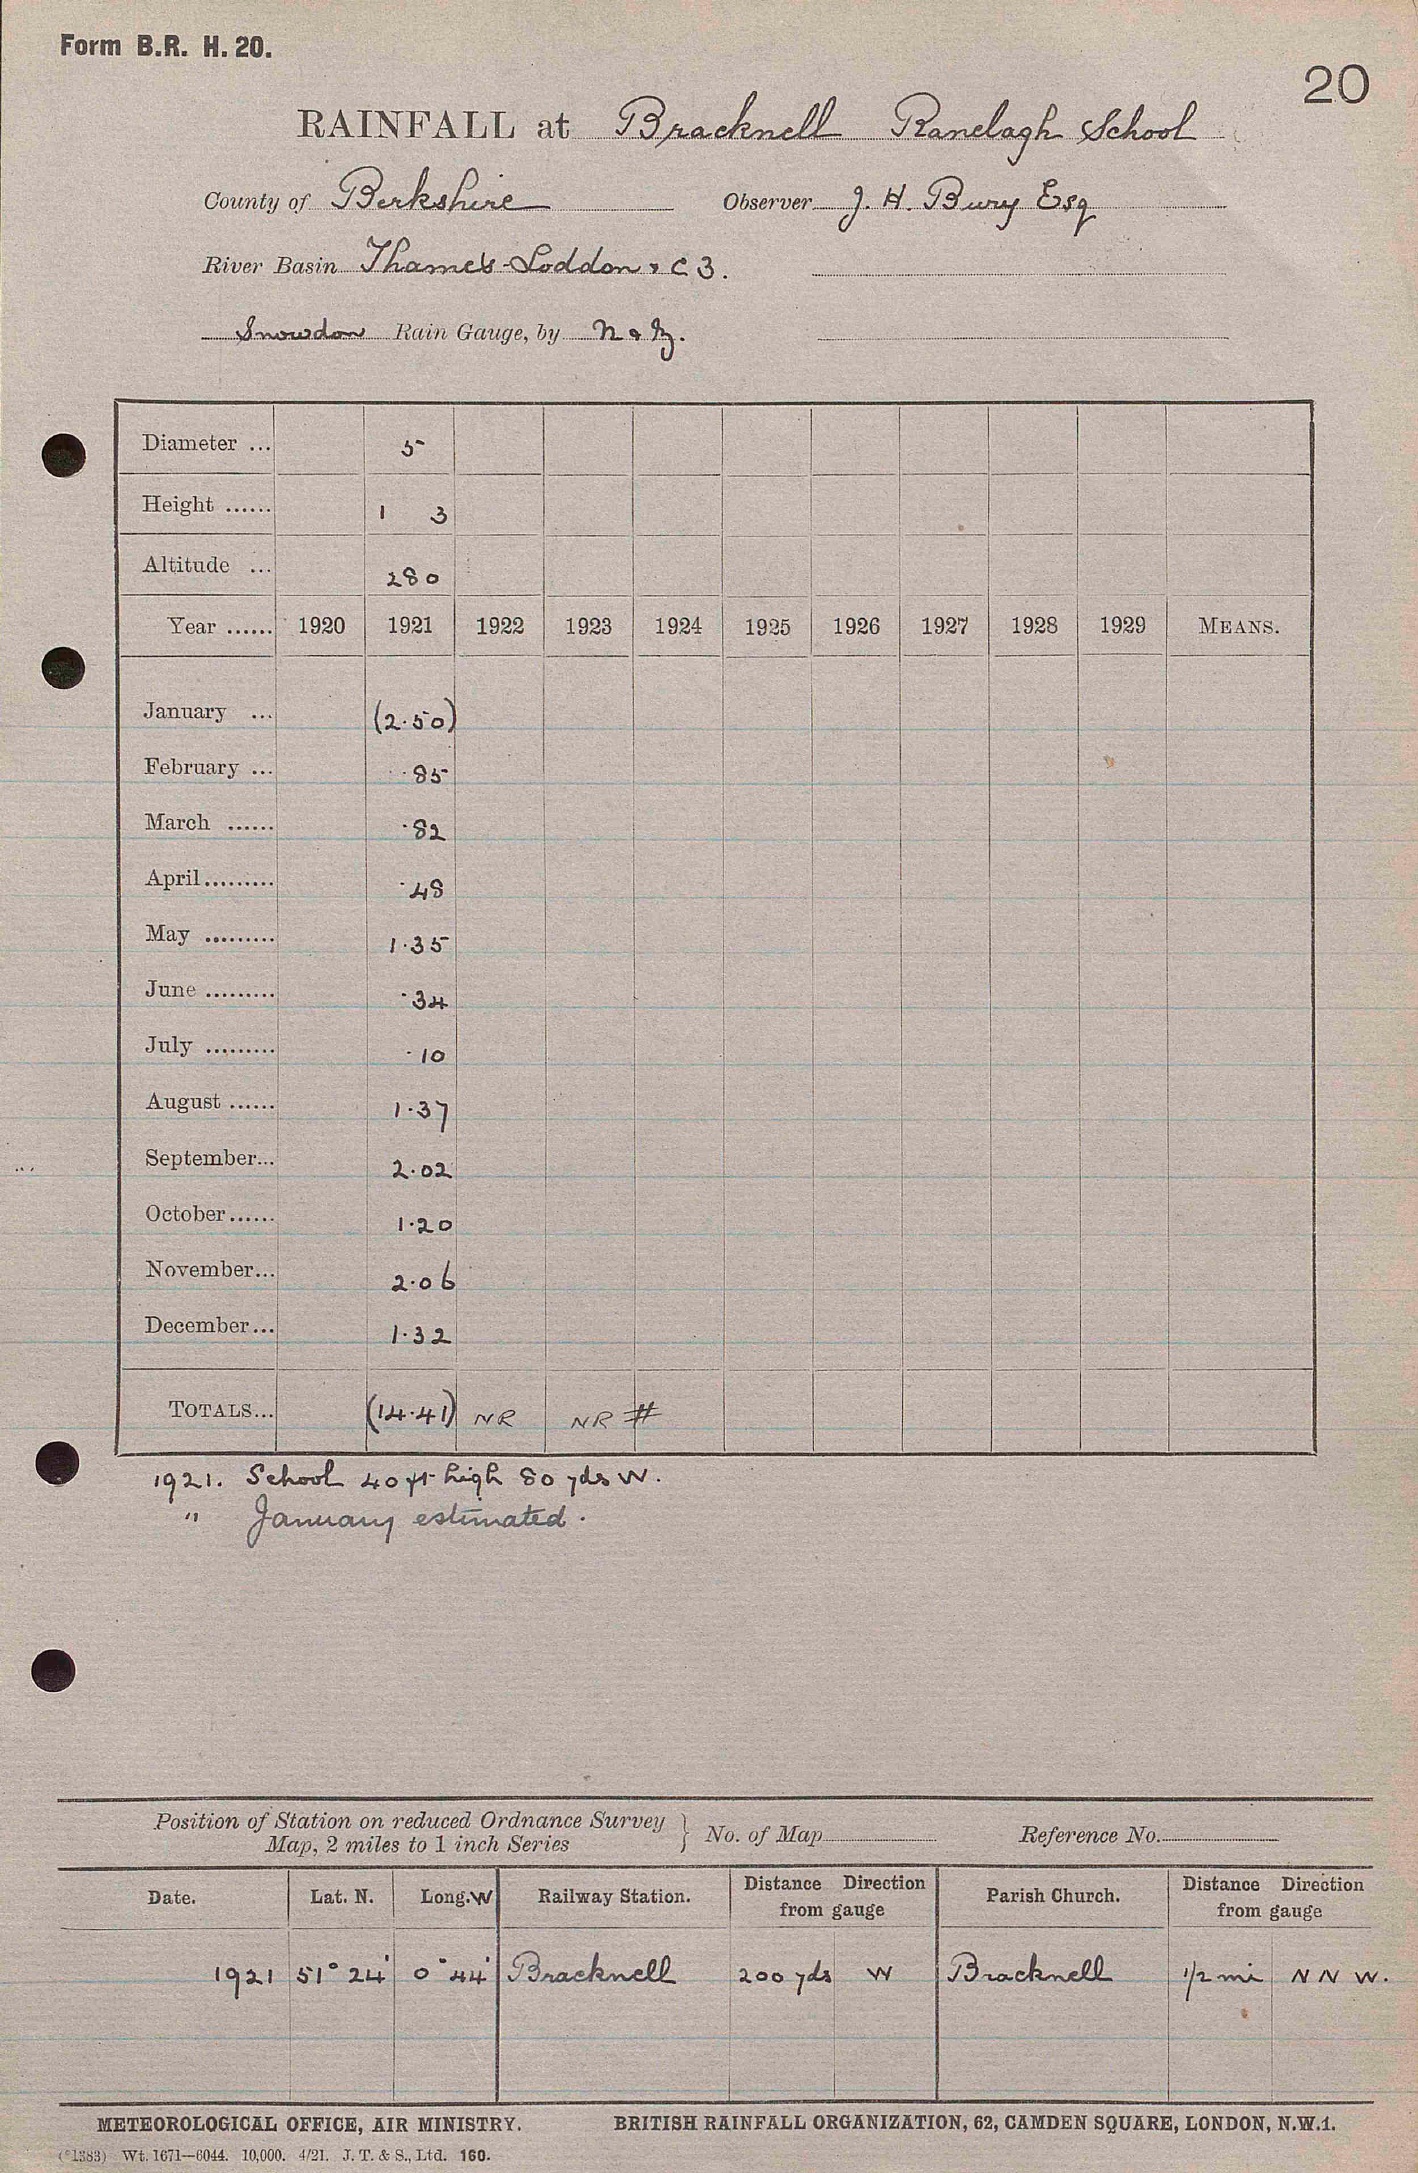 Form B.R. H. 20.
20
RAINFALL at Bracknell Ranelagh School
County of Berkshire Observer J. H. Bury Esq
River Basin Thames-Loddon, C 3.
Snowdon Rain Gauge, by N & Z.
Diameter ... 5
Height ...... 1 3
Altitude ... 280
Year ...... 1920 1921 1922 1923 1924 1925 1926 1927 1928 1929 MEANS.
January ... (2.50)
February ... .85
March ...... .82
April......... .48
May ......... 1.35
June ......... .34
July ......... .10
August ...... 1.37
September... 2.02
October...... 1.20
November... 2.06
December... 1.32
TOTALS... (14.41) NR NR #
1921. School 40 ft high 80 yds W.
" January estimated.
Position of Station on reduced Ordnance Survey
Map, 2 miles to 1 inch Series } No. of Map Reference No.
Date. Lat. N. Long. W Railway Station. Distance Direction from gauge Parish Church. Distance Direction from gauge
1921 51° 24' 0° 44' Bracknell 200 yds W Bracknell 1/2 mi N N W.
METEOROLOGICAL OFFICE, AIR MINISTRY. BRITISH RAINFALL ORGANIZATION, 62, CAMDEN SQUARE, LONDON, N.W.1.
(*1383) Wt. 1671—6044. 10,000. 4/21. J. T. & S., Ltd. 160.